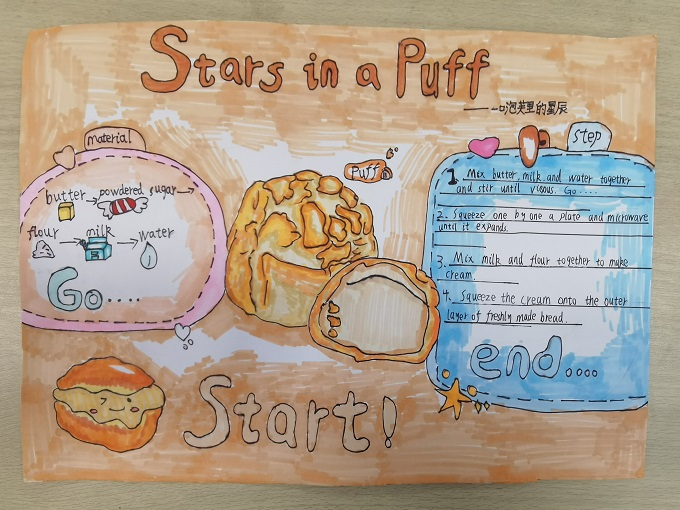 Stars in a Puff
——一口泡芙里的星辰
material
butter → powdered sugar →
flour → milk → water
Go....
Puff
step
1. Mix butter, milk and water together
and stir until viscous. Go....
2. Squeeze one by one a plate and microwave
until it expands.
3. Mix milk and flour together to make
cream.
4. Squeeze the cream onto the outer
layer of freshly made bread.
end....
Start!